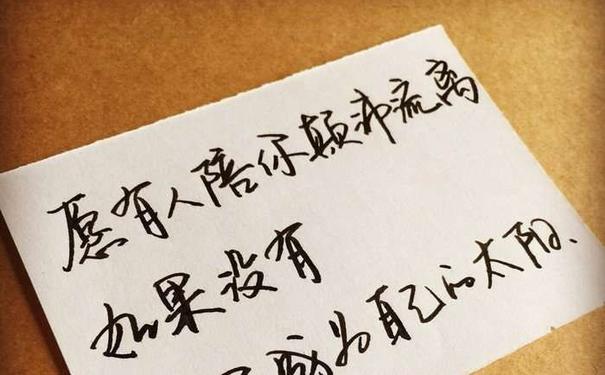 愿有人陪你颠沛流离
如果没有
成为自己的太阳、